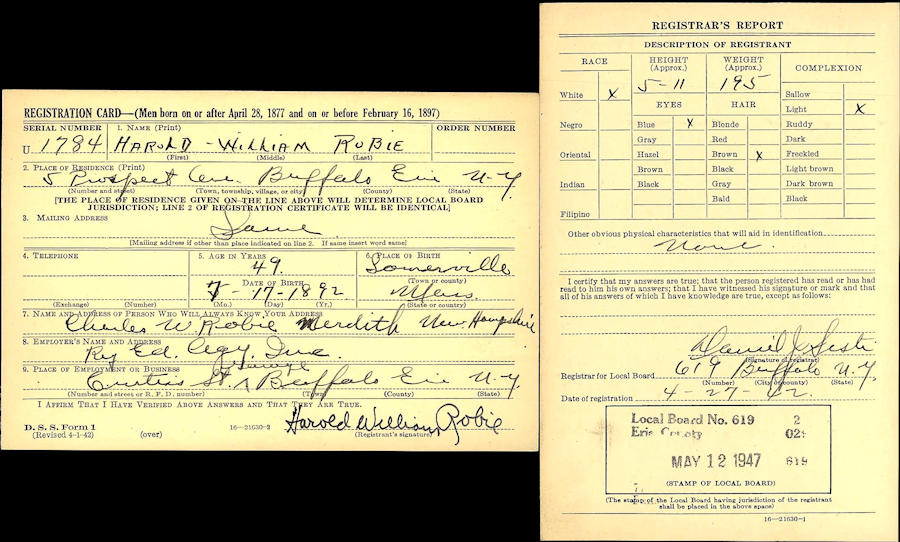 REGISTRATION CARD—(Men born on or after April 28, 1877 and on or before February 16, 1897)
SERIAL NUMBER 1. NAME (Print) ORDER NUMBER
U 1784 HAROLD - WILLIAM ROBIE
(First) (Middle) (Last)
2. PLACE OF RESIDENCE (Print)
5 Prospect Ave. Buffalo Erie N.Y.
(Number and street) (Town, township, village, or city) (County) (State)
[THE PLACE OF RESIDENCE GIVEN ON THE LINE ABOVE WILL DETERMINE LOCAL BOARD
JURISDICTION; LINE 2 OF REGISTRATION CERTIFICATE WILL BE IDENTICAL]
3. MAILING ADDRESS
Same
[Mailing address if other than place indicated on line 2. If same insert word same]
4. TELEPHONE 5. AGE IN YEARS 6. PLACE OF BIRTH
49. Somerville
DATE OF BIRTH (Town or county)
17-1892 Mass.
(Exchange) (Number) (Mo.) (Day) (Yr.) (State or country)
7. NAME AND ADDRESS OF PERSON WHO WILL ALWAYS KNOW YOUR ADDRESS
Charles W. Robie Merdith New Hampshire
8. EMPLOYER'S NAME AND ADDRESS
Ry Ed. Agy. Inc.
9. PLACE OF EMPLOYMENT OR BUSINESS
Curtiss St. Buffalo Erie N.Y.
(Number and street or R. F. D. number) (Town) (County) (State)
I AFFIRM THAT I HAVE VERIFIED ABOVE ANSWERS AND THAT THEY ARE TRUE.
D. S. S. Form 1
(Revised 4-1-42) (over) 16—21630-2 Harold William Robie
(Registrant's signature)
REGISTRAR'S REPORT
DESCRIPTION OF REGISTRANT
RACE HEIGHT (Approx.) WEIGHT (Approx.) COMPLEXION
5-11 195
White X Sallow
EYES HAIR Light X
Negro Blue X Blonde Ruddy
Gray Red Dark
Oriental Hazel Brown X Freckled
Brown Black Light brown
Indian Black Gray Dark brown
Bald Black
Filipino
Other obvious physical characteristics that will aid in identification
None.
I certify that my answers are true; that the person registered has read or has had
read to him his own answers; that I have witnessed his signature or mark and that
all of his answers of which I have knowledge are true, except as follows:
Daniel
(Signature of registrar)
Registrar for Local Board 619 Buffalo N.Y.
(Number) (City or county) (State)
Date of registration 4-27-42
Local Board No. 619 2
Erie County 02
MAY 12 1947 619
(STAMP OF LOCAL BOARD)
(The stamp of the Local Board having jurisdiction of the registrant
shall be placed in the above space)
16—21630-1